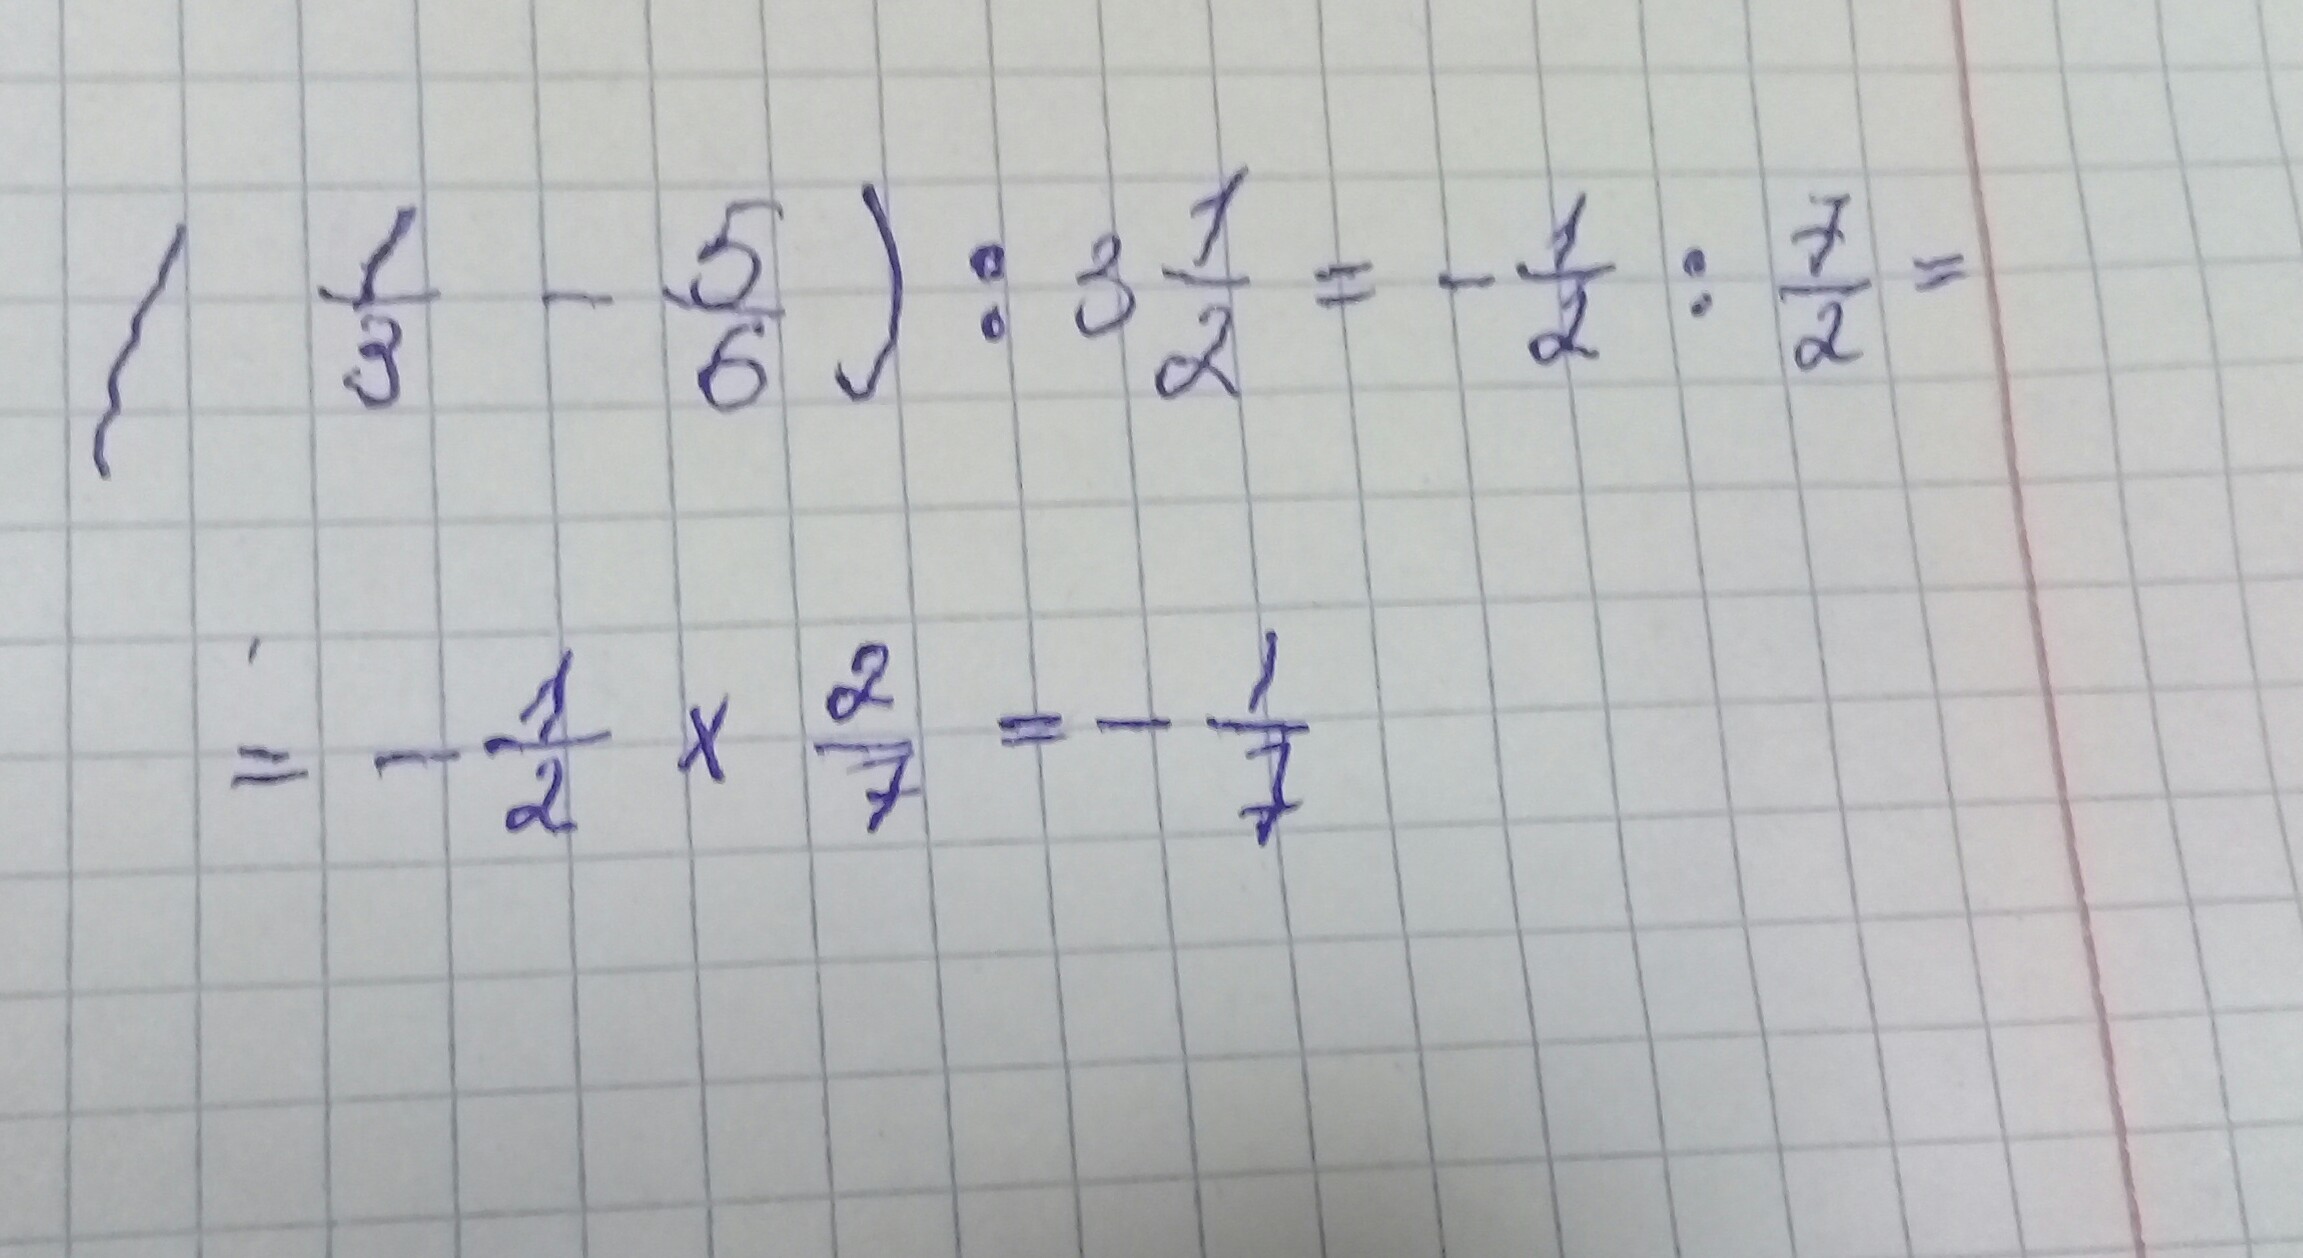 ( 1/3 - 5/6 ) : 3 1/2 = - 1/2 : 7/2 =
= - 1/2 x 2/7 = - 1/7